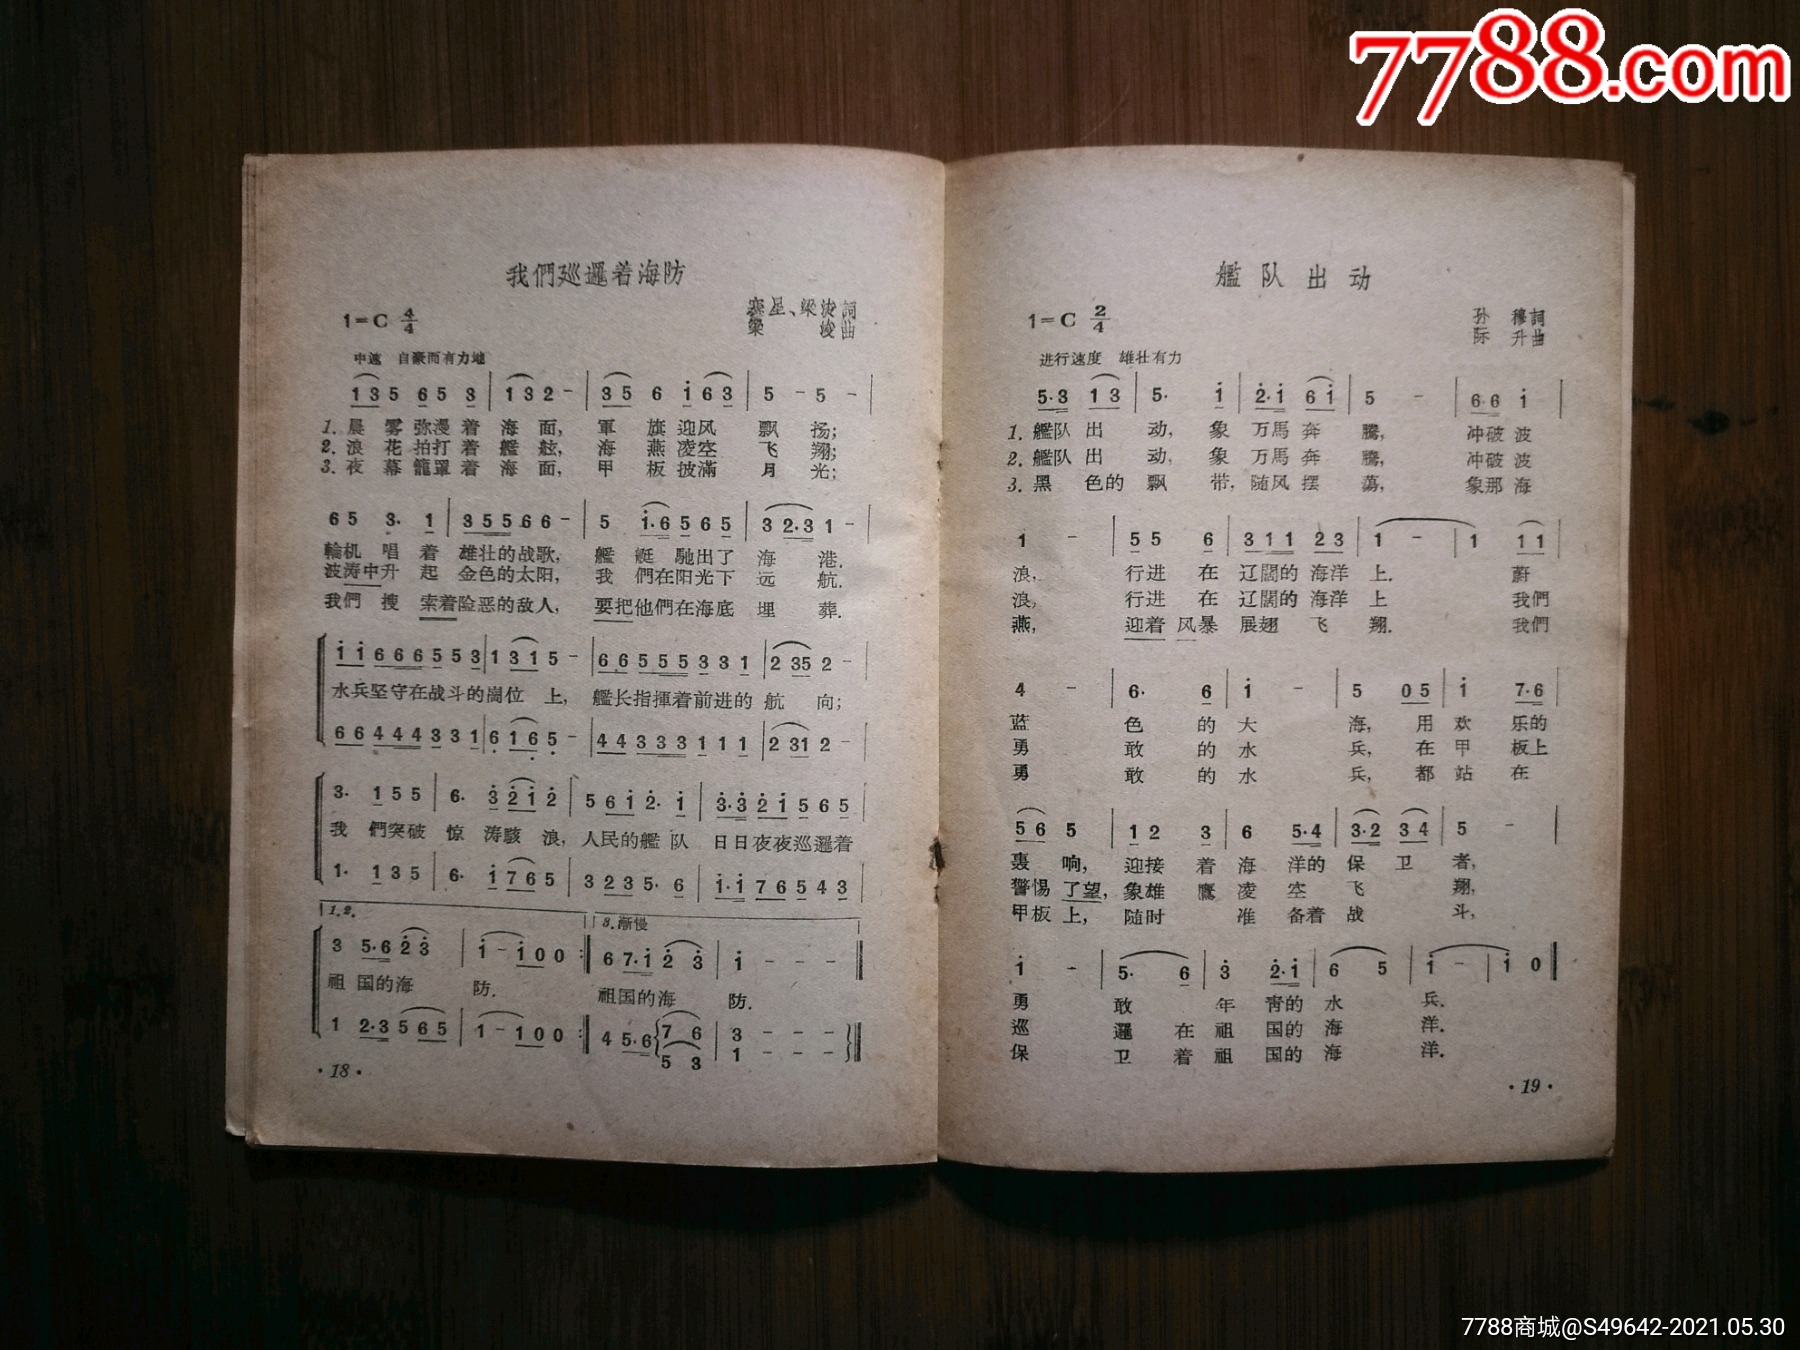 7788.com
我們廵邏着海防
1=C 4/4
寒星、梁浚詞
梁 浚曲
中速 自豪而有力地
1 3 5 6 5 3 | 1 3 2 - | 3 5 6 i 6 3 | 5 - 5 - |
1. 晨雾弥漫着海面，軍旗迎风飘扬；
2. 浪花拍打着艦舷，海燕凌空飞翔；
3. 夜幕籠罩着海面，甲板披滿月光；
6 5 3· 1 | 3 5 5 6 6 - | 5 i·6 5 6 5 | 3 2·3 1 - |
輪机唱着雄壮的战歌，艦艇馳出了海港．
波涛中升起金色的太阳，我們在阳光下远航．
我們搜索着险恶的敌人，要把他們在海底埋葬．
i i 6 6 6 5 5 3 | 1 3 1 5 - | 6 6 5 5 5 3 3 1 | 2 3 5 2 - |
水兵坚守在战斗的崗位上，艦长指揮着前进的航向；
6 6 4 4 4 3 3 1 | 6 1 6 5 - | 4 4 3 3 3 1 1 1 | 2 3 1 2 - |
3· 1 5 5 | 6· 3 2 i 2 | 5 6 i 2· i | 3·3 2 i 5 6 5 |
我們突破惊涛駭浪，人民的艦队日日夜夜巡邏着
1· 1 3 5 | 6· i 7 6 5 | 3 2 3 5· 6 | i·i 7 6 5 4 3 |
1. 2. 3. 渐慢
3 5·6 2 3 | i - i 0 0 :| 6 7·i 2 3 | i - - - ‖
祖国的海防．祖国的海防．
1 2·3 5 6 5 | 1 - 1 0 0 :| 4 5·6 7 6 | 3 - - - ‖
5 3 1 - - -
·18·
艦队出动
1=C 2/4
孙 穆詞
际 升曲
进行速度 雄壮有力
5·3 1 3 | 5· i | 2·i 6 i | 5 - | 6·6 i |
1. 艦队出动，象万馬奔騰，冲破波
2. 艦队出动，象万馬奔騰，冲破波
3. 黑色的飘带，随风摆蕩，象那海
1 - | 5 5 6 | 3 1 1 2 3 | 1 - | 1 1 1 |
浪，行进在辽闊的海洋上．蔚
浪，行进在辽闊的海洋上 我們
燕，迎着风暴展翅飞翔．我們
4 - | 6· 6 | i - | 5 0 5 | i 7·6 |
蓝色的大海，用欢乐的
勇敢的水兵，在甲板上
勇敢的水兵，都站在
5 6 5 | 1 2 3 | 6 5·4 | 3·2 3 4 | 5 - |
轰响，迎接着海洋的保卫者，
警惕了望，象雄鷹凌空飞翔，
甲板上，随时准备着战斗，
i - | 5· 6 | 3 2·i | 6 5 | i - | i 0 ‖
勇敢年青的水兵．
巡邏在祖国的海洋．
保卫着祖国的海洋．
·19·
7788商城@S49642-2021.05.30